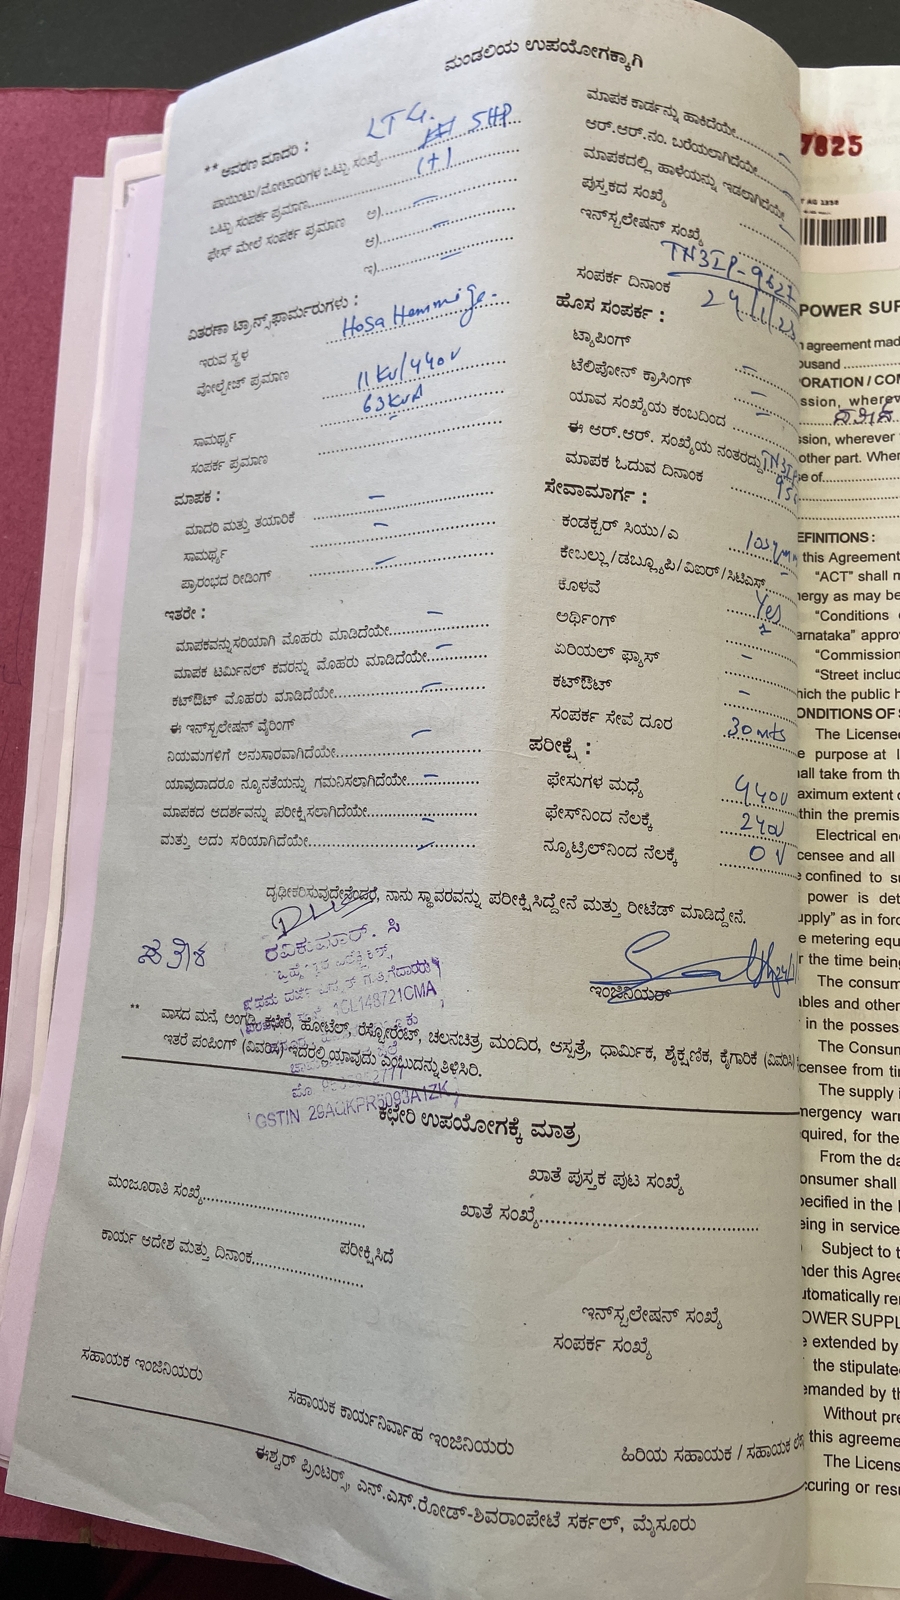 ಮಂಡಲಿಯ ಉಪಯೋಗಕ್ಕಾಗಿ
** ಆವರಣ ಮಾದರಿ : LT4.
ಪಾಯಿಂಟು/ಮೋಟಾರುಗಳ ಒಟ್ಟು ಸಂಖ್ಯೆ 5HP
ಒಟ್ಟು ಸಂಪರ್ಕ ಪ್ರಮಾಣ (+)
ಫೇಸ್ ಮೇಲೆ ಸಂಪರ್ಕ ಪ್ರಮಾಣ ಅ) —
ಆ) —
ಇ) —
ವಿತರಣಾ ಟ್ರಾನ್ಸ್‌ಫಾರ್ಮರುಗಳು :
ಇರುವ ಸ್ಥಳ Hosa Hemmige-
ವೋಲ್ಟೇಜ್ ಪ್ರಮಾಣ 11KV/440V
63KVA
ಸಾಮರ್ಥ್ಯ
ಸಂಪರ್ಕ ಪ್ರಮಾಣ
ಮಾಪಕ :
ಮಾದರಿ ಮತ್ತು ತಯಾರಿಕೆ —
ಸಾಮರ್ಥ್ಯ —
ಪ್ರಾರಂಭದ ರೀಡಿಂಗ್ —
ಇತರೇ :
ಮಾಪಕವನ್ನು ಸರಿಯಾಗಿ ಮೊಹರು ಮಾಡಿದೆಯೇ —
ಮಾಪಕ ಟರ್ಮಿನಲ್ ಕವರನ್ನು ಮೊಹರು ಮಾಡಿದೆಯೇ —
ಕಟ್‌ಔಟ್ ಮೊಹರು ಮಾಡಿದೆಯೇ —
ಈ ಇನ್‌ಸ್ಟಲೇಷನ್ ವೈರಿಂಗ್
ನಿಯಮಗಳಿಗೆ ಅನುಸಾರವಾಗಿದೆಯೇ —
ಯಾವುದಾದರೂ ನ್ಯೂನತೆಯನ್ನು ಗಮನಿಸಲಾಗಿದೆಯೇ —
ಮಾಪಕದ ಆದರ್ಶವನ್ನು ಪರೀಕ್ಷಿಸಲಾಗಿದೆಯೇ —
ಮತ್ತು ಅದು ಸರಿಯಾಗಿದೆಯೇ —
ಮಾಪಕ ಕಾರ್ಡನ್ನು ಹಾಕಿದೆಯೇ —
ಆರ್.ಆರ್.ನಂ. ಬರೆಯಲಾಗಿದೆಯೇ
ಮಾಪಕದಲ್ಲಿ ಹಾಳೆಯನ್ನು ಇಡಲಾಗಿದೆಯೇ
ಪುಸ್ತಕದ ಸಂಖ್ಯೆ
ಇನ್‌ಸ್ಟಲೇಷನ್ ಸಂಖ್ಯೆ
TN3IP-9627
ಸಂಪರ್ಕ ದಿನಾಂಕ 24/1/23
ಹೊಸ ಸಂಪರ್ಕ :
ಟ್ಯಾಪಿಂಗ್
ಟೆಲಿಪೋನ್ ಕ್ರಾಸಿಂಗ್ —
ಯಾವ ಸಂಖ್ಯೆಯ ಕಂಬದಿಂದ —
ಈ ಆರ್.ಆರ್. ಸಂಖ್ಯೆಯ ನಂತರದ್ದು TN3IP
ಮಾಪಕ ಓದುವ ದಿನಾಂಕ
ಸೇವಾಮಾರ್ಗ :
ಕಂಡಕ್ಟರ್ ಸಿಯು/ಎ 10sqmm
ಕೇಬಲ್ಲು/ಡಬ್ಲ್ಯೂಪಿ/ವಿಐಆರ್/ಸಿಟಿಎಸ್
ಕೊಳವೆ Yes
ಅರ್ಥಿಂಗ್
ಏರಿಯಲ್ ಫ್ಯೂಸ್ —
ಕಟ್‌ಔಟ್ —
ಸಂಪರ್ಕ ಸೇವೆ ದೂರ 30mts
ಪರೀಕ್ಷೆ :
ಫೇಸುಗಳ ಮಧ್ಯೆ 440V
ಫೇಸ್‌ನಿಂದ ನೆಲಕ್ಕೆ 240V
ನ್ಯೂಟ್ರಲ್‌ನಿಂದ ನೆಲಕ್ಕೆ 0V
ದೃಢೀಕರಿಸುವುದೇನೆಂದರೆ, ನಾನು ಸ್ಥಾವರವನ್ನು ಪರೀಕ್ಷಿಸಿದ್ದೇನೆ ಮತ್ತು ರೀಟೆಡ್ ಮಾಡಿದ್ದೇನೆ.
ರವಿಕುಮಾರ್. ಸಿ
1CL148721CMA
ಇಂಜಿನಿಯರ್
** ವಾಸದ ಮನೆ, ಅಂಗಡಿ, ಕಛೇರಿ, ಹೋಟೆಲ್, ರೆಸ್ಟೋರೆಂಟ್, ಚಲನಚಿತ್ರ ಮಂದಿರ, ಆಸ್ಪತ್ರೆ, ಧಾರ್ಮಿಕ, ಶೈಕ್ಷಣಿಕ, ಕೈಗಾರಿಕೆ (ವಿವರಿಸಿ)
ಇತರೆ ಪಂಪಿಂಗ್ (ವಿವರಿಸಿ) ಇದರಲ್ಲಿ ಯಾವುದು ಎಂಬುದನ್ನು ತಿಳಿಸಿರಿ.
GSTIN 29AQKPR5093A1ZK
ಕಛೇರಿ ಉಪಯೋಗಕ್ಕೆ ಮಾತ್ರ
ಖಾತೆ ಪುಸ್ತಕ ಪುಟ ಸಂಖ್ಯೆ
ಮಂಜೂರಾತಿ ಸಂಖ್ಯೆ
ಖಾತೆ ಸಂಖ್ಯೆ
ಕಾರ್ಯ ಆದೇಶ ಮತ್ತು ದಿನಾಂಕ
ಪರೀಕ್ಷಿಸಿದೆ
ಇನ್‌ಸ್ಟಲೇಷನ್ ಸಂಖ್ಯೆ
ಸಂಪರ್ಕ ಸಂಖ್ಯೆ
ಸಹಾಯಕ ಇಂಜಿನಿಯರು
ಸಹಾಯಕ ಕಾರ್ಯನಿರ್ವಾಹ ಇಂಜಿನಿಯರು
ಹಿರಿಯ ಸಹಾಯಕ / ಸಹಾಯಕ
ಈಶ್ವರ್ ಪ್ರಿಂಟರ್ಸ್, ಎನ್.ಎಸ್.ರೋಡ್-ಶಿವರಾಂಪೇಟೆ ಸರ್ಕಲ್, ಮೈಸೂರು
7825
POWER SUP
agreement made
ousand
ORATION / COM
ssion, wherev
ssion, wherever
other part. Wher
se of
EFINITIONS :
this Agreement
"ACT" shall m
nergy as may be
"Conditions
arnataka" approv
"Commission
"Street includ
hich the public h
ONDITIONS OF S
The Licensee
e purpose at
all take from the
aximum extent o
thin the premis
Electrical en
censee and all
confined to su
power is det
upply" as in forc
e metering equ
r the time being
The consum
ables and other
in the posses
The Consum
censee from tim
The supply i
mergency warr
quired, for the
From the da
onsumer shall
pecified in the
eing in service
Subject to t
nder this Agree
utomatically re
OWER SUPPL
e extended by
the stipulate
emanded by th
Without pre
this agreeme
The Licens
ccuring or resu